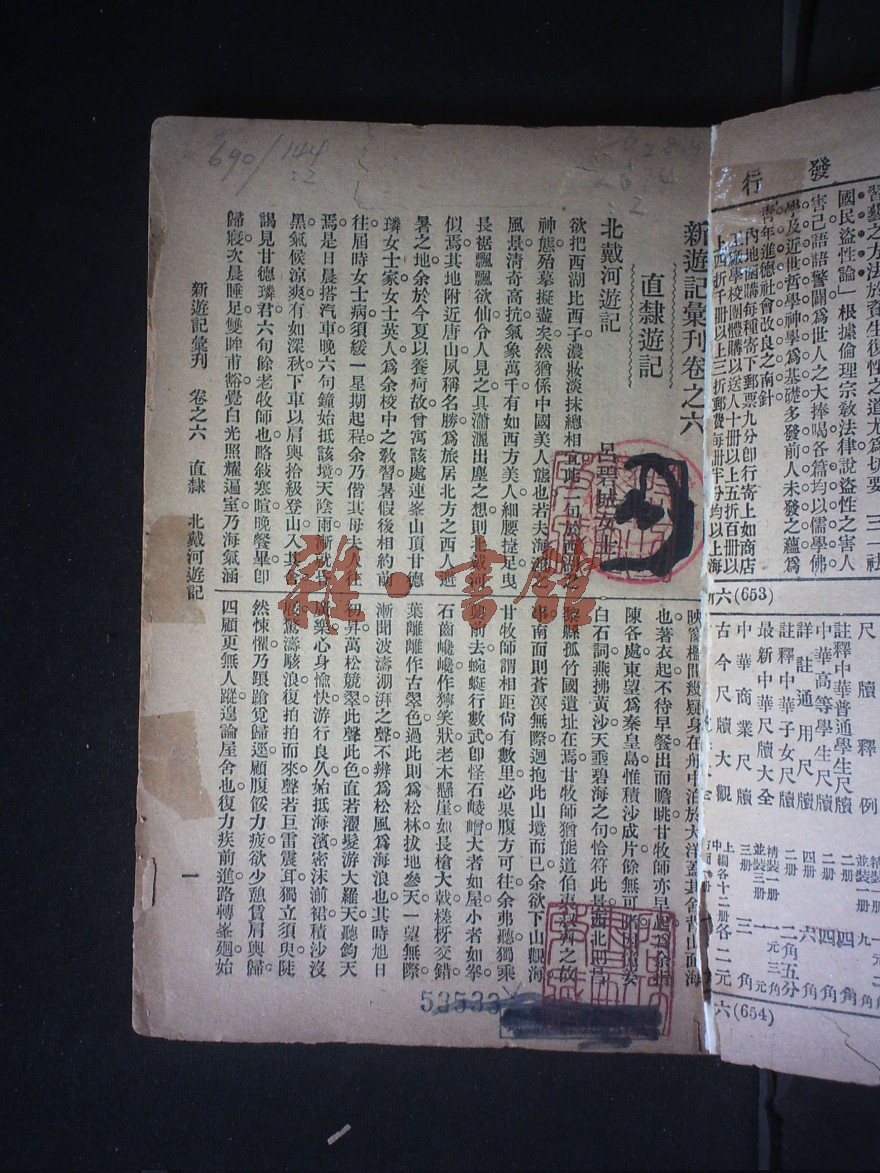 新遊記彙刊卷之六
直隸遊記
北戴河遊記
呂碧城女士
欲把西湖比西子濃妝淡抹總相宜此二句於西湖之
神態殆摹擬盡矣然猶係中國美人態也若夫海濱之
風景清奇高抗氣象萬千有如西方美人細腰捷足曳
長裾飄飄欲仙令人見之具瀟灑出塵之想則北戴河
似焉其地附近唐山夙稱名勝爲旅居北方之西人避
暑之地余於今夏以養疴故曾寓該處連峯山頂甘德
璘女士家女士英人爲余校中之敎習暑假後相約前
往屆時女士病須緩一星期起程余乃偕其母夫人往
焉是日晨搭汽車晚六句鐘始抵該境天陰雨漸就昏
黑氣候涼爽有如深秋下車以肩輿拾級登山入其舍
謁見甘德璘君六旬餘老牧師也略敍寒暄晚餐畢卽
歸寢次晨睡足雙眸甫豁覺白光照耀逼室乃海氣涵
映窗檻間殺疑身在舟中泊於大洋蓋其舍背山面海
也著衣起不待早餐出而瞻眺甘牧師亦早起爲余指
陳各處東望爲秦皇島惟積沙成片餘無可睹
白石詞燕拂黃沙天垂碧海之句恰符此景西北則昌
黎縣孤竹國遺址在焉甘牧師猶能道伯夷叔齊之故
事南面則蒼溟無際迴抱此山境而已余欲下山觀海
甘牧師謂相距尙有數里必果腹方可往余弗聽獨乘
興前去蜿蜒行數武卽怪石崚嶒大者如屋小者如拳
石齒巉巉作獰笑狀老木懸崖如長槍大戟槎枒交錯
葉離離作古翠色過此則爲松林拔地參天一望無際
漸聞波濤漰湃之聲不辨爲松風爲海浪也其時旭日
初昇萬松競翠此聲此色直若濯髮游大羅天聽鈞天
廣樂心身愉快游行良久始抵海濱密沫湔裙積沙沒
履驚濤駭浪復拍拍而來聲若巨雷震耳獨立須臾陡
然悚懼乃踉蹌覓歸逕顧腹餒力疲欲少憩賃肩輿歸
四顧更無人蹤遑論屋舍也復力疾前進路轉峯廻始
新遊記彙刊　卷之六　直隸　北戴河遊記
一
690/144
:2
53533
雅·書館
發行
習藝之方法於養生復性之道尤爲切要　三一社
國民盜性論」根據倫理宗教法律說盜性之害人
害己語語警闢爲世人之大捧喝各篇均以儒學佛
學及近世哲學神學爲基礎多發前人未發之蘊爲
靑年進德社會改良之南針
內地函購每種寄下郵票九分卽行寄上如商店
工廠學校團體購以送人十册以上五折百册以
上四折千册以上三折郵費每册半分均以上海
六(653)
尺牘釋例
註釋中華普通學生尺牘
中華高等學生尺牘
詳註通用尺牘
註釋中華子女尺牘
最新中華尺牘大全
中華商業尺牘
古今尺牘大觀
六(654)